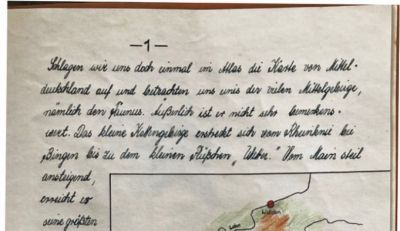 — 1 —
Schlagen wir uns doch einmal im Atlas die Karte von Mittel-
deutschland auf und betrachten uns unis der vielen Mittelgebirge,
nämlich den Taunus. Äußerlich ist er nicht sehr bemerkens-
wert. Das kleine Kettengebirge erstreckt sich vom Rheinknie bei
Bingen bis zu dem kleinen Flüßchen „Wetter". Vom Main steil
ansteigend,
erreicht es
seine größten